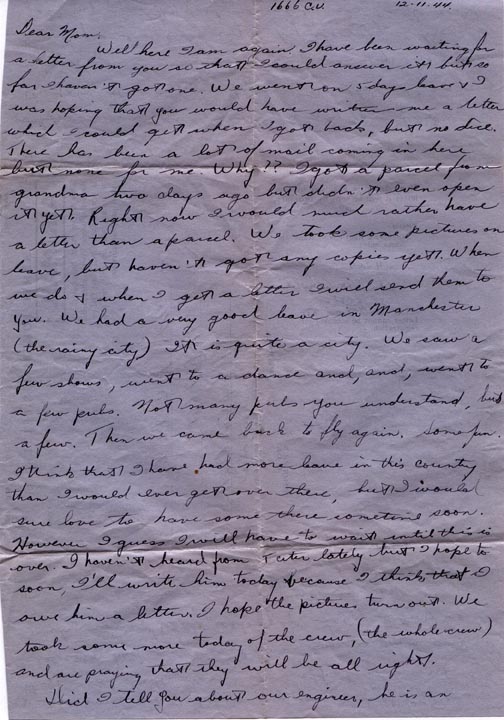 1666 C.U. 12-11-44.
Dear Mom,
Well here I am again. I have been waiting for
a letter from you so that I could answer it but so
far I haven't got one. We went on 5 days leave & I
was hoping that you would have written me a letter
which I could get when I got back, but no dice.
There has been a lot of mail coming in here
but none for me. Why?? I got a parcel from
grandma two days ago but didn't even open
it yet. Right now I would much rather have
a letter than a parcel. We took some pictures on
leave, but haven't got any copies yet. When
we do & when I get a letter I will send them to
you. We had a very good leave in Manchester
(the rainy city) It is quite a city. We saw a
few shows, went to a dance and, and, went to
a few pubs. Not many pubs you understand, but
a few. Then we came back to fly again. Some fun.
I think that I have had more leave in this country
than I would ever get over there, but I would
sure love to have some there sometime soon.
However I guess I will have to wait until this is
over. I haven't heard from lately but I hope to
soon, I'll write him today because I think that I
owe him a letter. I hope the pictures turn out. We
took some more today of the crew, (the whole crew)
and are praying that they will be all right.
Did I tell you about our engineer, he is an